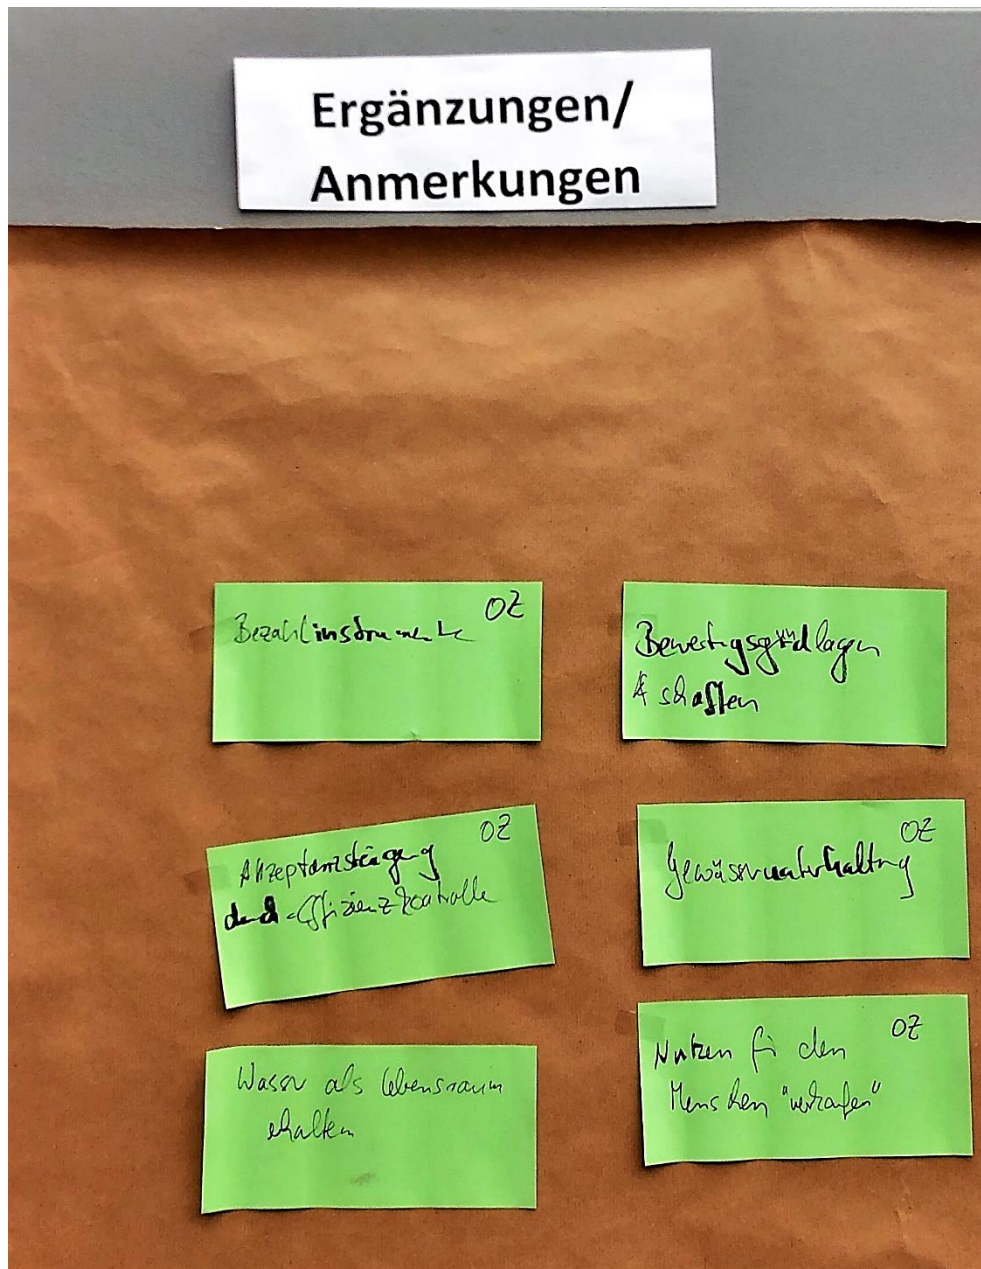 Ergänzungen/
Anmerkungen
OZ
Bezahlinstrumente
Bewertungsgrundlagen
schaffen
OZ
Akzeptanzsteigerung
durch Effizienzkontrolle
OZ
Gewässerunterhaltung
Wasser als Lebensraum
erhalten
OZ
Nutzen für den
Menschen "verkaufen"